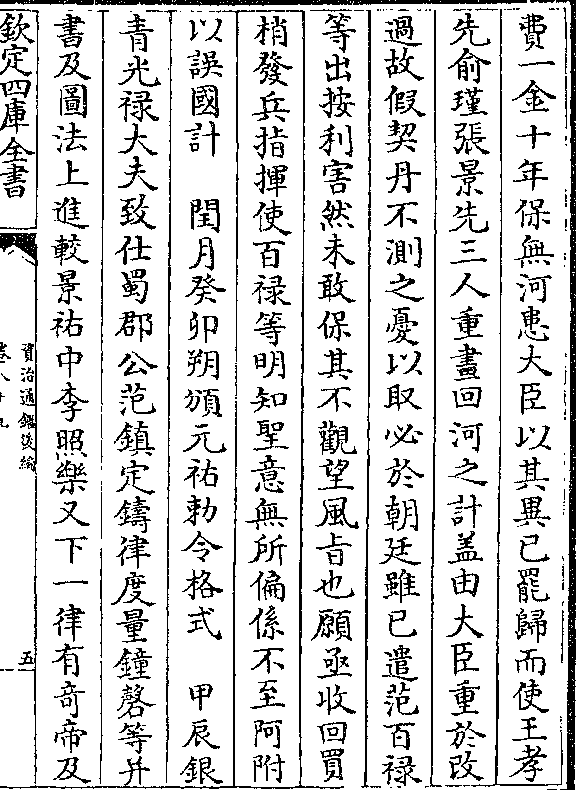 費一金十年保無河患大臣以其異已罷歸而使王孝
先俞瑾張景先三人重畫回河之計盖由大臣重於改
過故假契丹不測之憂以取必於朝廷雖已遣范百禄
等出按利害然未敢保其不觀望風㫖也願亟收回買
梢發兵指揮使百禄等明知聖意無所偏係不至阿附
以誤國計　閏月癸卯朔頒元祐勅令格式　甲辰銀
青光禄大夫致仕蜀郡公范鎮定鑄律度量鐘磬等并
書及圖法上進較景祐中李照樂又下一律有竒帝及
欽定四庫全書
資治通鑑後編
卷八十九
五